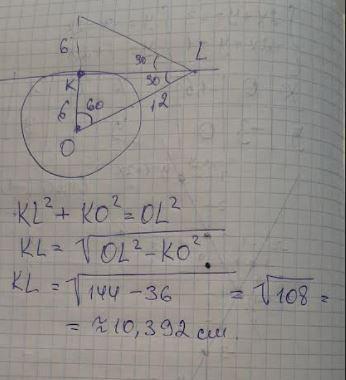 6
30
L
K
30
6
60
12
O
KL² + KO² = OL²
KL = √OL² − KO²
KL = √144 − 36 = √108 =
= ≈ 10,392 см.